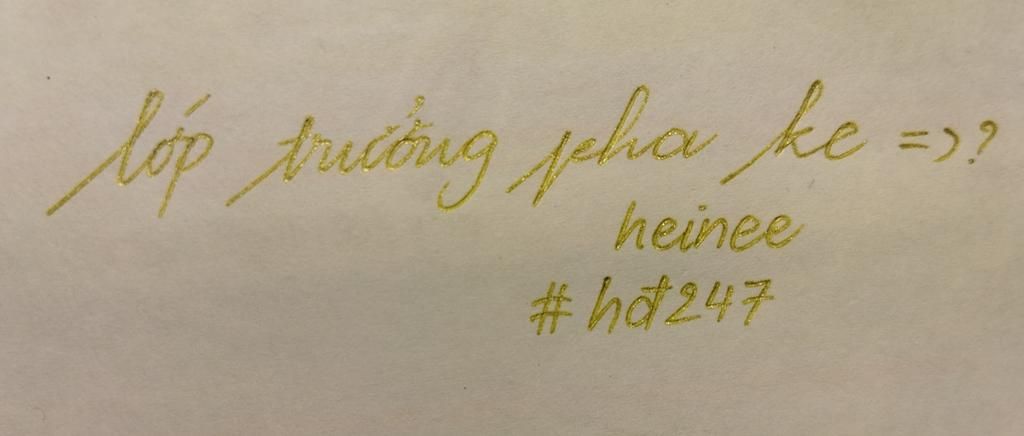 lớp trưởng pha ke =>?
heinee
#hđ247